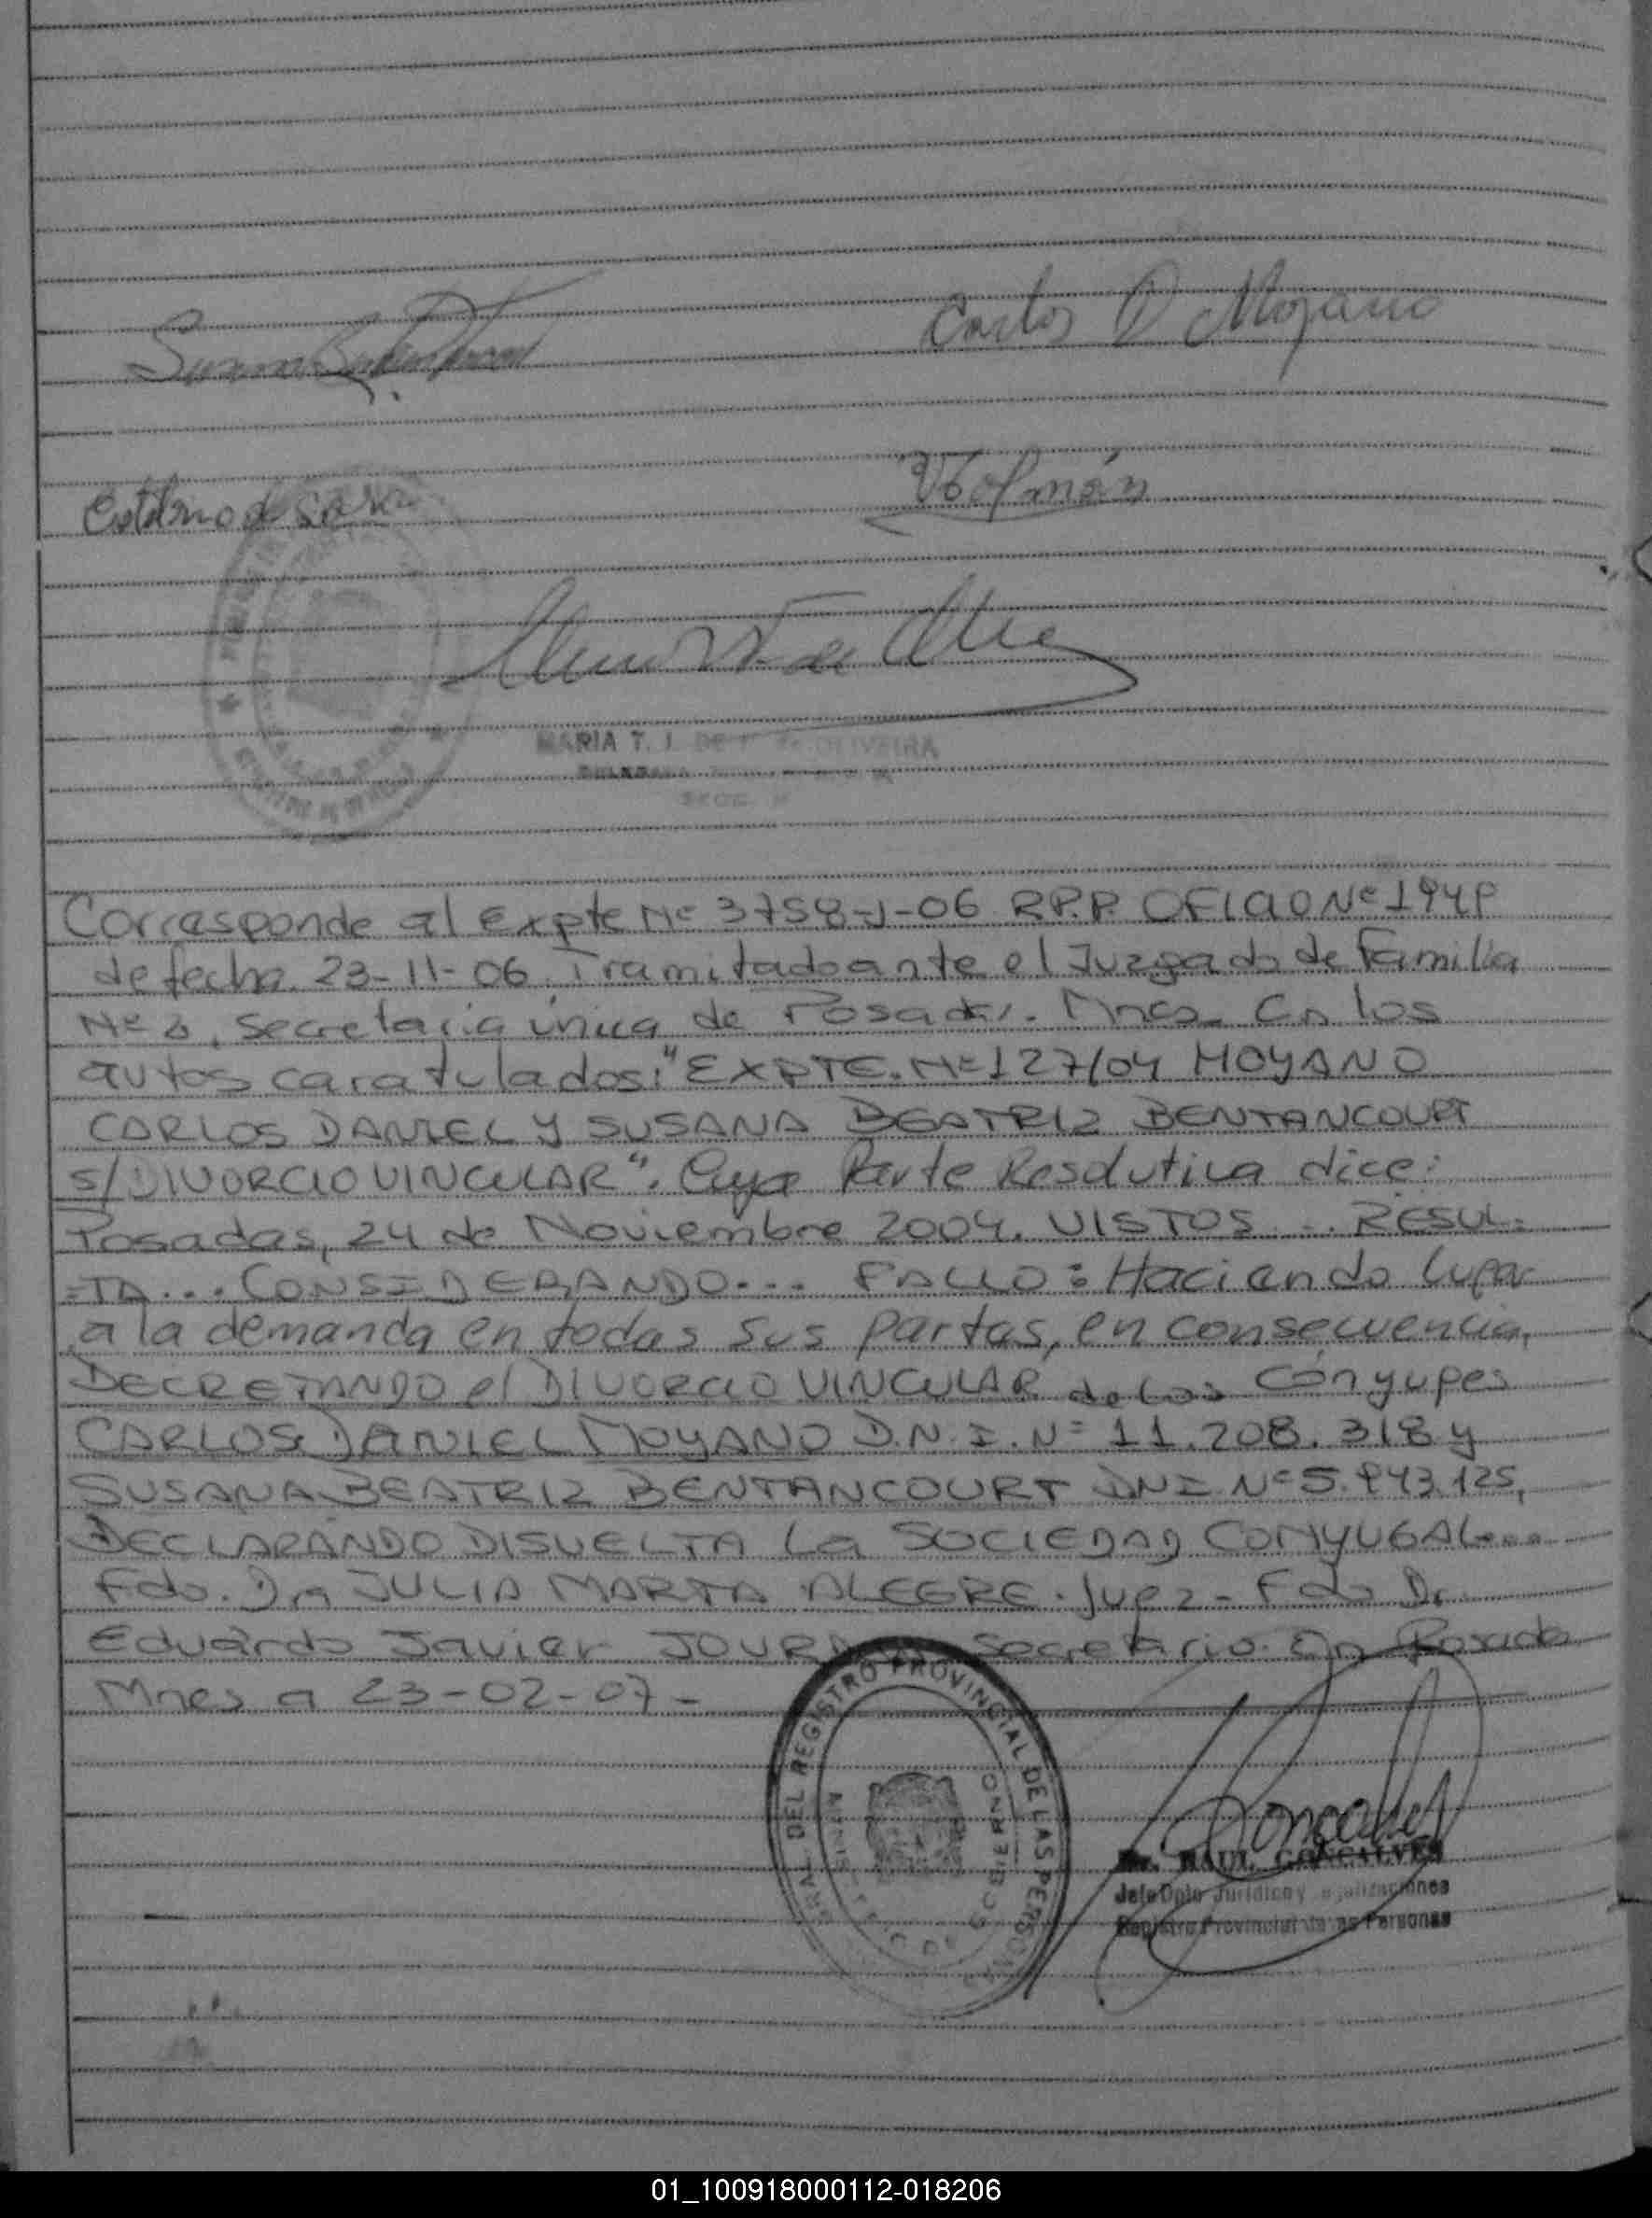 Carlos D Moyano
MARIA T. OLIVEIRA
Corresponde al Expte Nº 3758-J-06 R.P.P. OFICIO Nº
de fecha 23-11-06. Tramitado ante el Juzgado de Familia
Nº Secretaria única de Posadas. Mnes. En los
autos caratulados: "EXPTE. Nº 127/04 MOYANO
CARLOS DANIEL Y SUSANA BEATRIZ BENTANCOURT
S/DIVORCIO VINCULAR". Cuya Parte Resolutiva dice:
Posadas, 24 de Noviembre 2004. VISTOS ... RESUL=
=TA... CONSIDERANDO... FALLO: Haciendo lugar
a la demanda en todas sus partes, en consecuencia,
DECRETANDO el DIVORCIO VINCULAR de los Cónyuges
CARLOS DANIEL MOYANO D.N.I. Nº 11.208.318 y
SUSANA BEATRIZ BENTANCOURT DNI Nº 5.943.125,
DECLARANDO DISUELTA La SOCIEDAD CONYUGAL...
Fdo. Dra JULIA MARTA ALEGRE. Juez - Fdo Dr.
Eduardo Javier Secretario. En Posadas
Mnes a 23-02-07-
GRAL. DEL REGISTRO PROVINCIAL DE LAS PERSONAS
MINISTERIO DE GOBIERNO
Dr. RAUL GONCALVES
Jefe Dpto Juridico y
Registro Provincial de las Personas
01_100918000112-018206